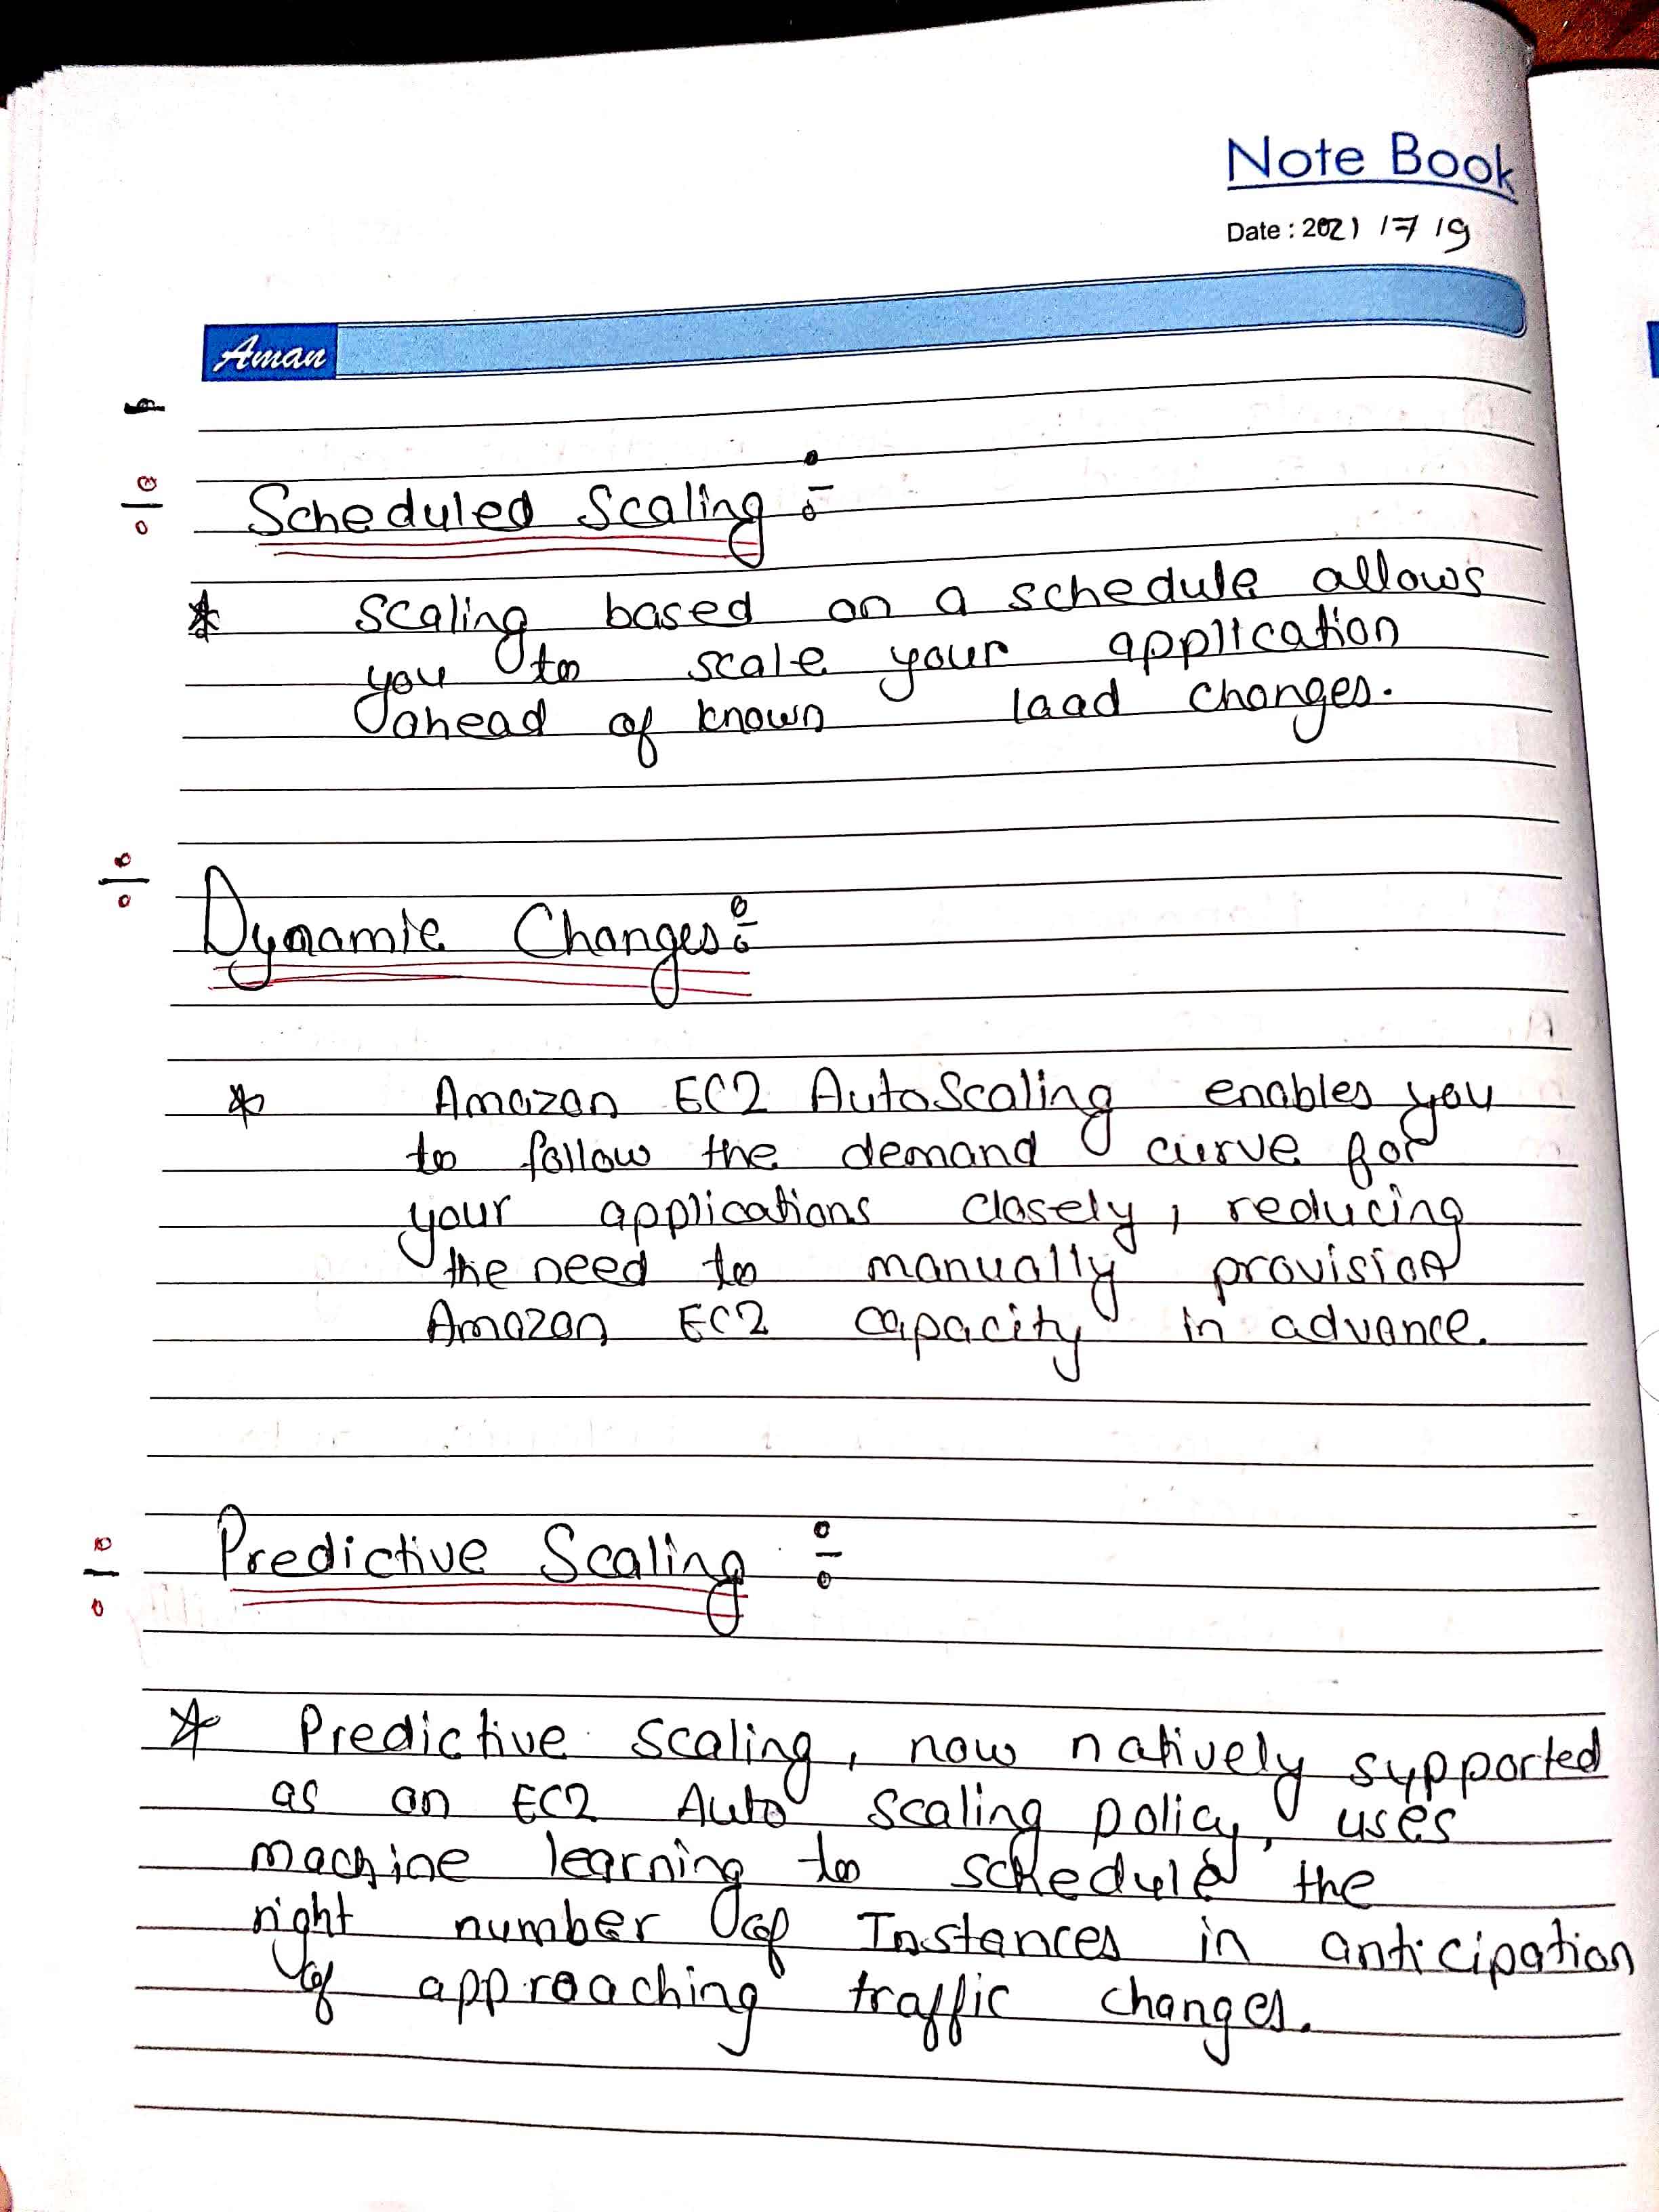 Note Book
Date : 2021 / 7 / 9
Aman
Scheduled Scaling :-
* Scaling based on a schedule allows
you to scale your application
ahead of known load changes.
Dynamic Changes :-
* Amazon EC2 AutoScaling enables you
to follow the demand curve for
your applications closely, reducing
the need to manually provision
Amazon EC2 capacity in advance.
Predictive Scaling :-
* Predictive scaling, now natively supported
as an EC2 Auto scaling policy, uses
machine learning to schedule the
right number of Instances in anticipation
of approaching traffic changes.